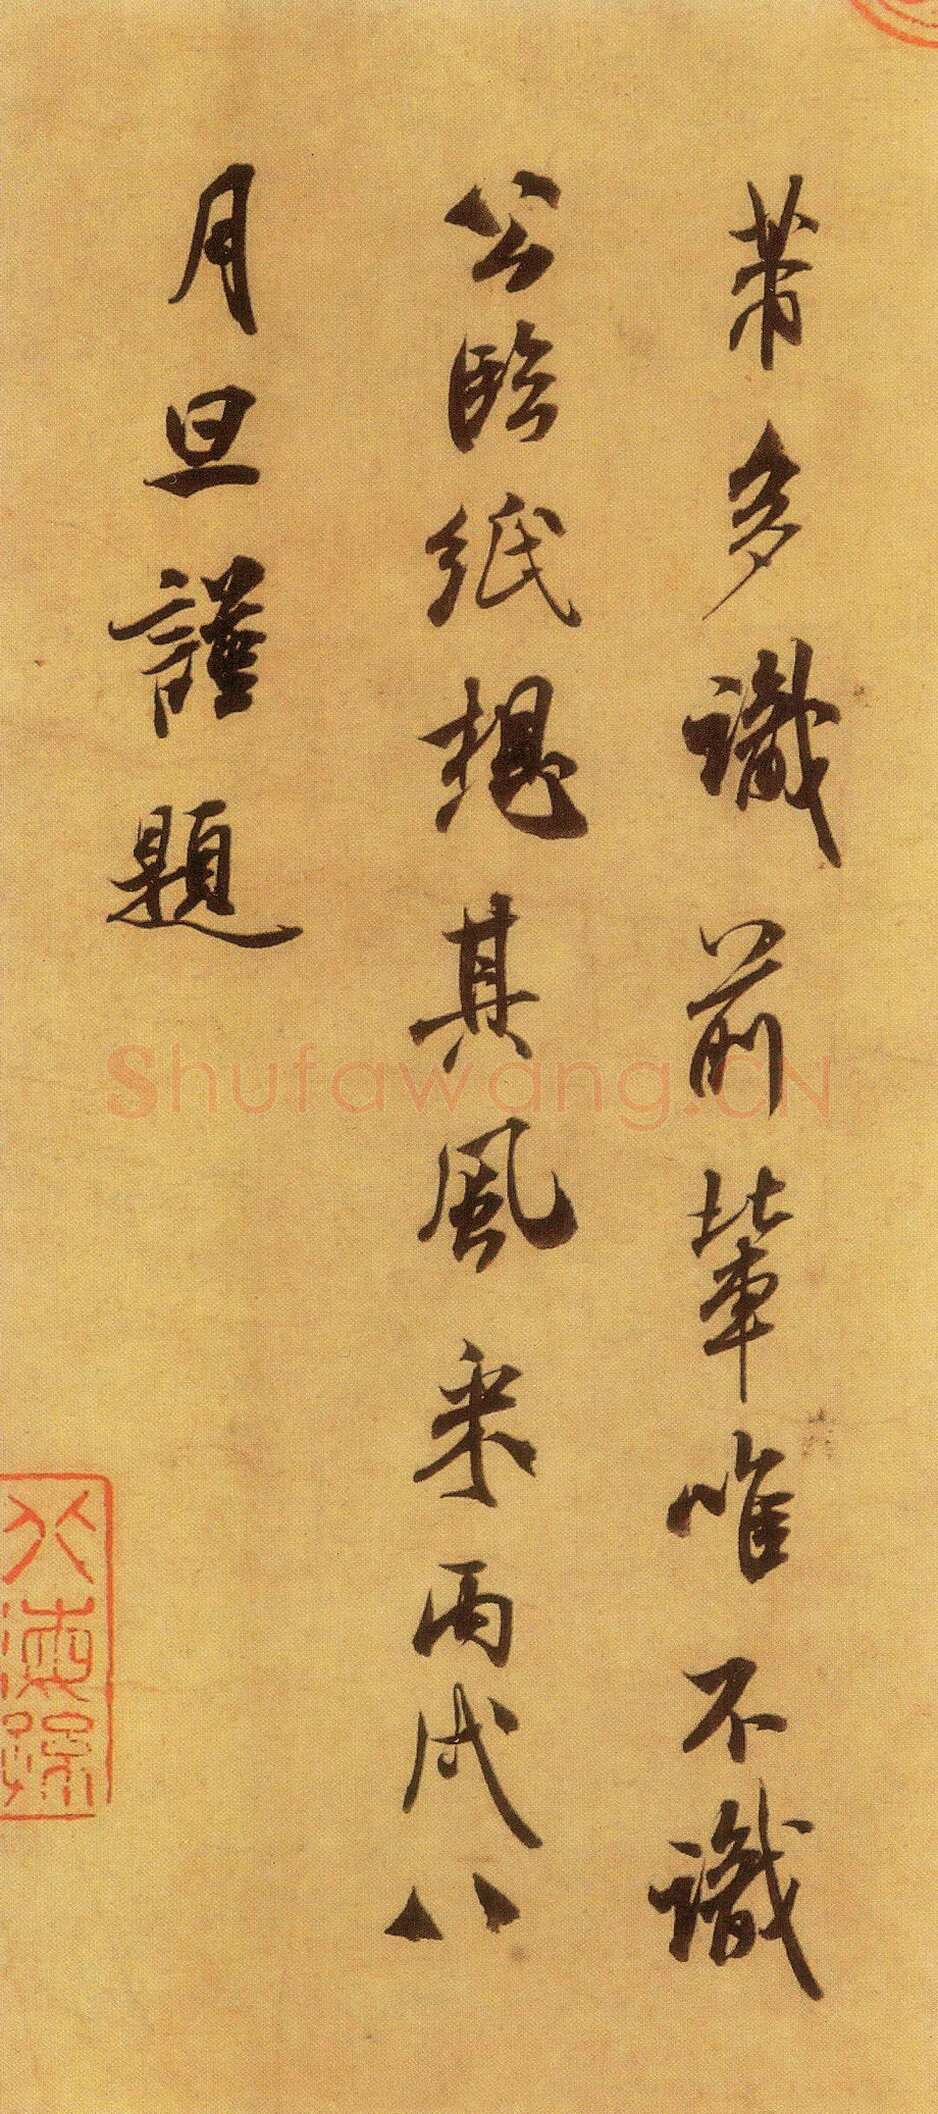 芾多識前輩唯不識
公臨紙想其風采丙戌八
月旦謹題
Shufawang.CN